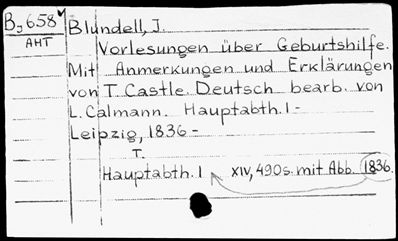 B, 658 Blundell, J.
AHT
Vorlesungen über Geburtshilfe.
Mit Anmerkungen und Erklärungen
von T. Castle. Deutsch bearb. von
L. Calmann. Hauptabth. I -
Leipzig, 1836 -
T.
Hauptabth. I XIV, 490 s. mit Abb. 1836.